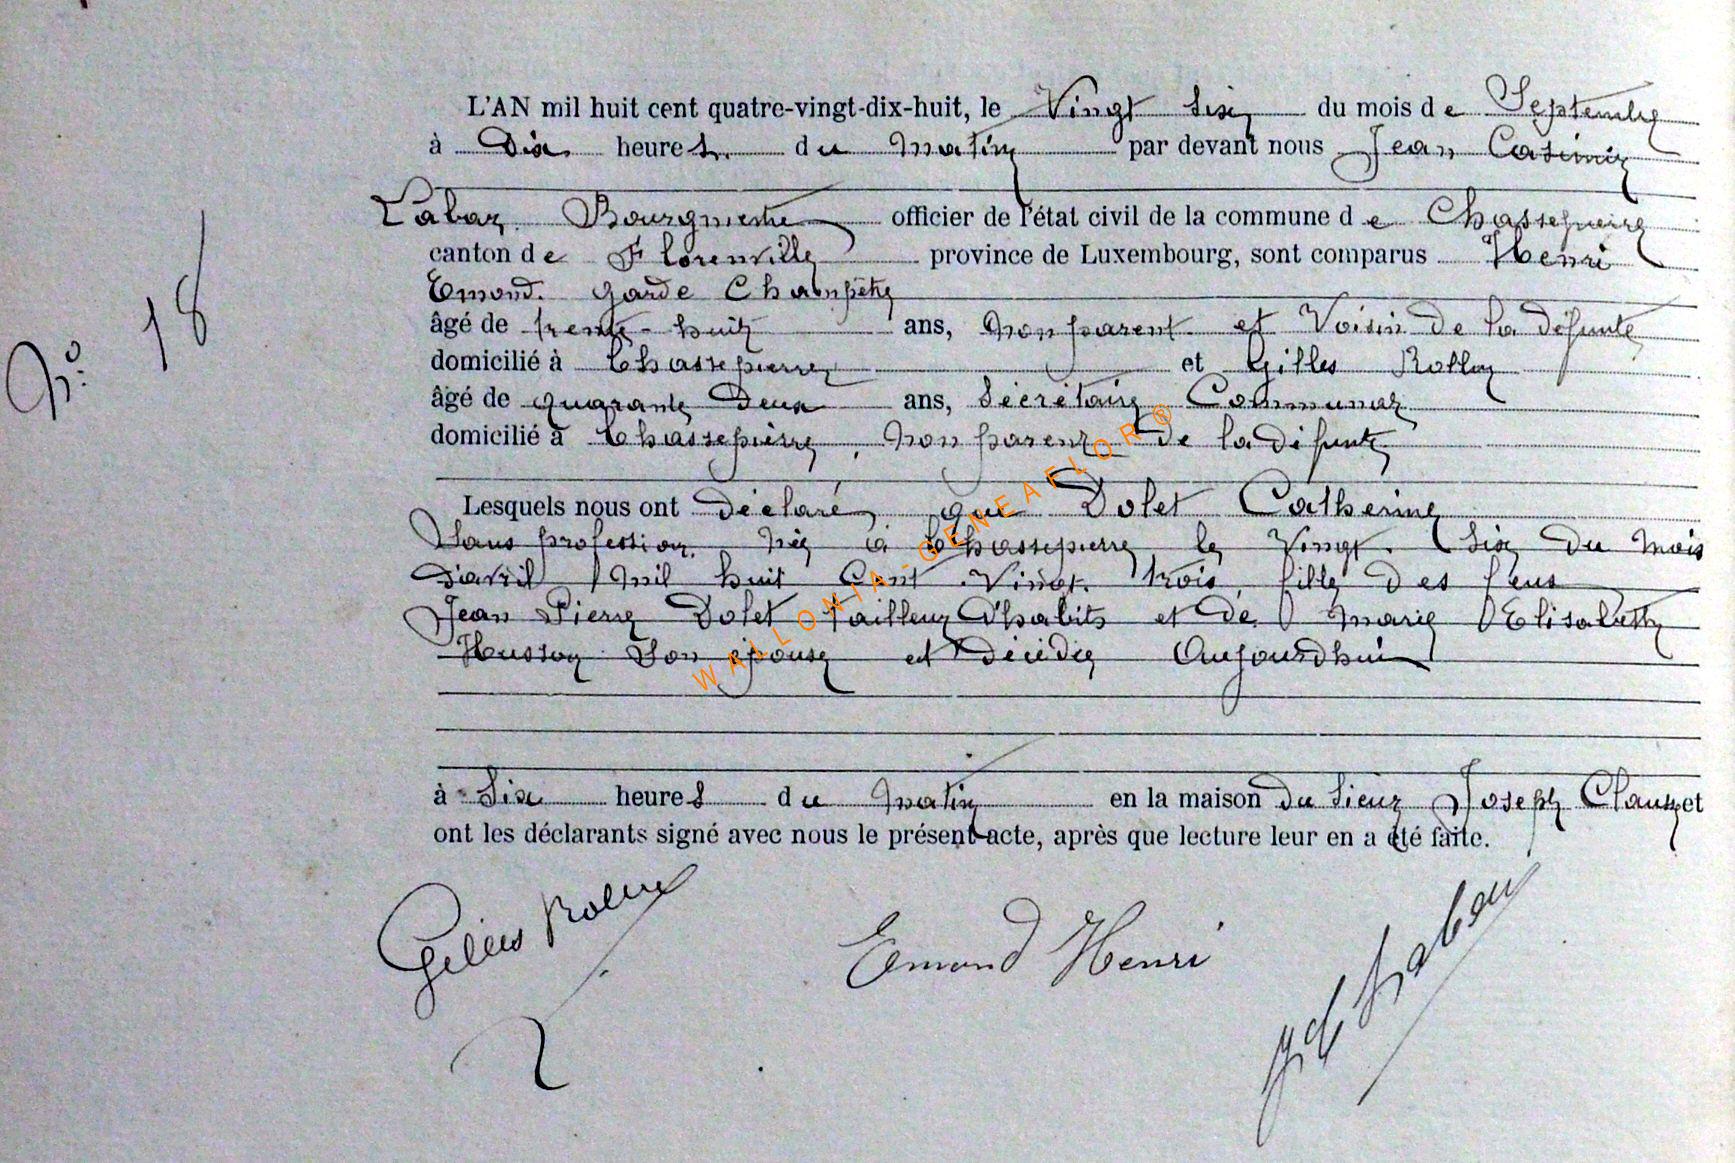 N° 18
L'AN mil huit cent quatre-vingt-dix-huit, le Vingt six du mois de Septembre
à Dix heures du matin par devant nous Jean Casimir
Labar Bourgmestre officier de l'état civil de la commune de Chassepierre
canton de Florenville province de Luxembourg, sont comparus Henri
Emond. garde Champêtre
âgé de trente-huit ans, non parent et Voisin de la défunte
domicilié à Chassepierre et Gilles
âgé de quarante Deux ans, Secrétaire Communal
domicilié à Chassepierre, non parent de la défunte
Lesquels nous ont déclaré que Dolet Catherine
Sans profession, née à Chassepierre le Vingt Six du mois
d'avril Mil huit Cent Vingt trois fille des feus
Jean Pierre Dolet tailleur D'habits et de Marie Elisabeth
Husson Son épouse est décédée Aujourdhui
à Six heures du matin en la maison du Sieur Joseph et
ont les déclarants signé avec nous le présent acte, après que lecture leur en a été faite.
Gilles
Emond Henri
WALLONIA-GENEAFLOR®